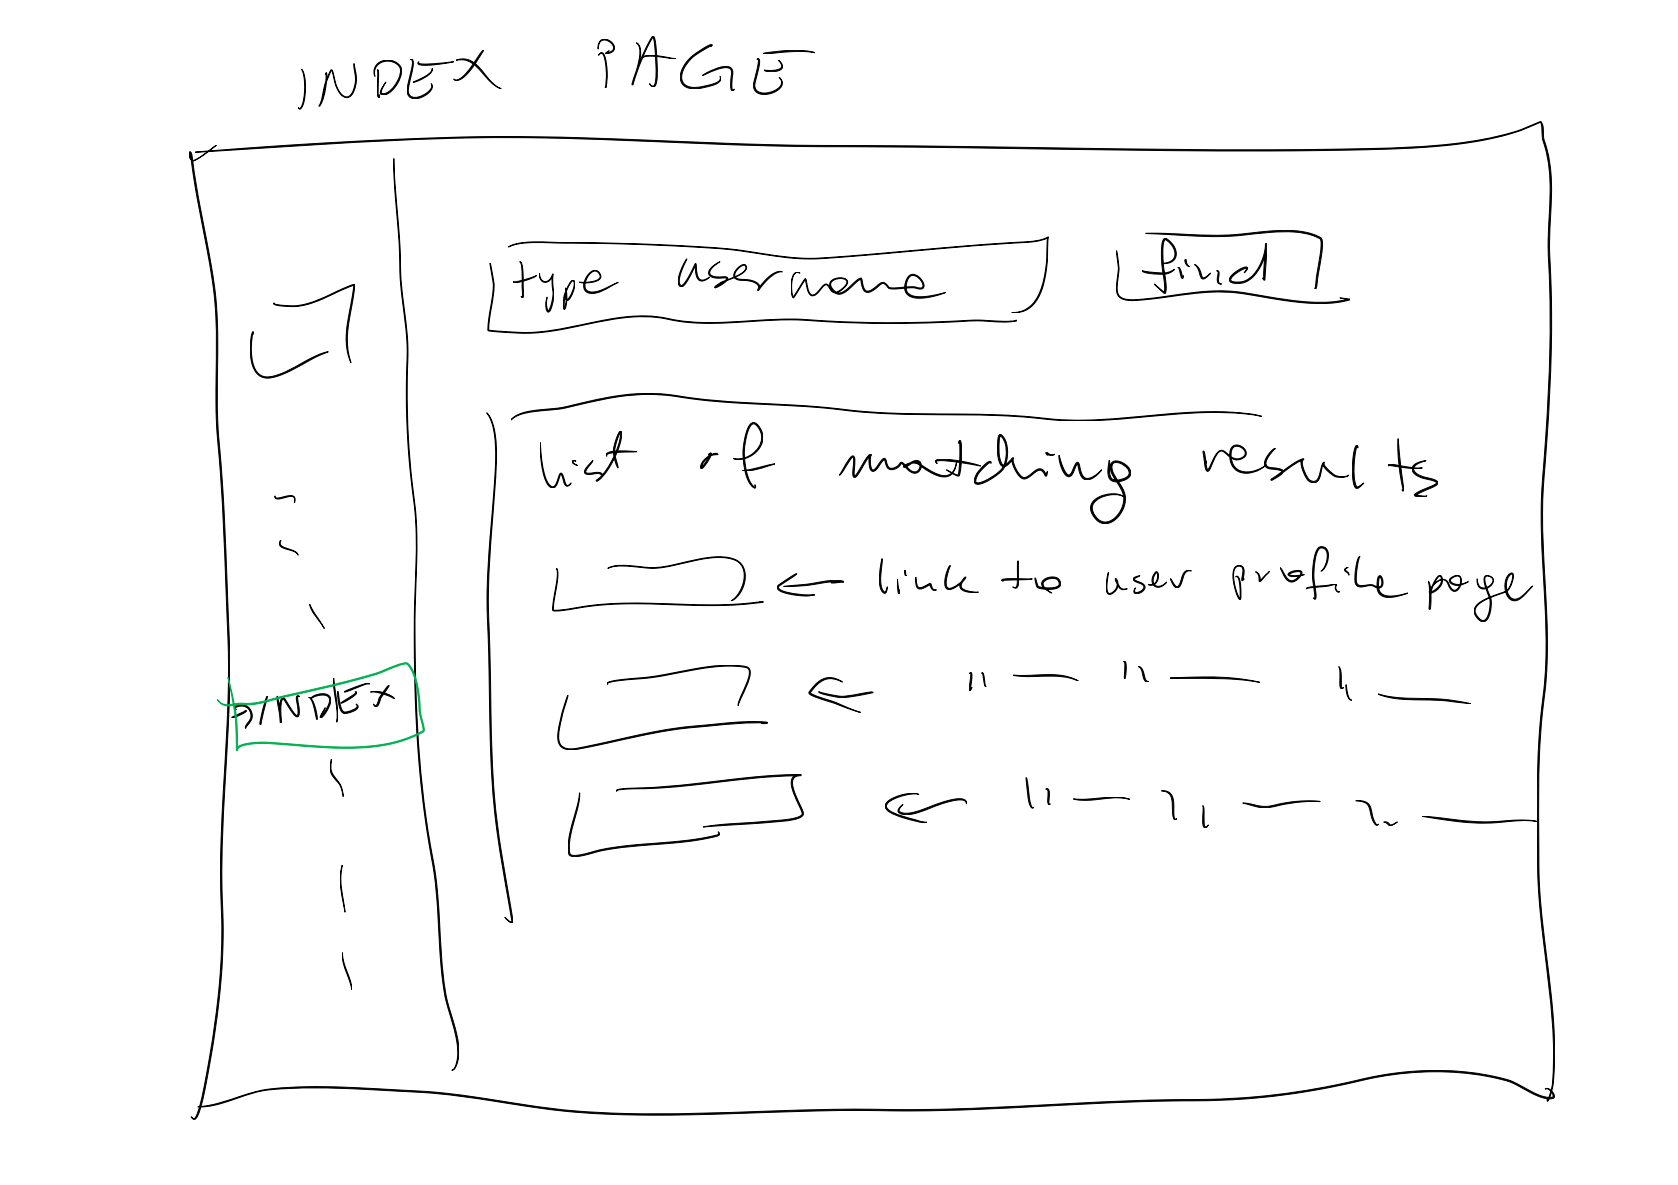 INDEX PAGE
type username
find
list of matching results
← link to user profile page
← " — " — " —
INDEX
← " — " — " —